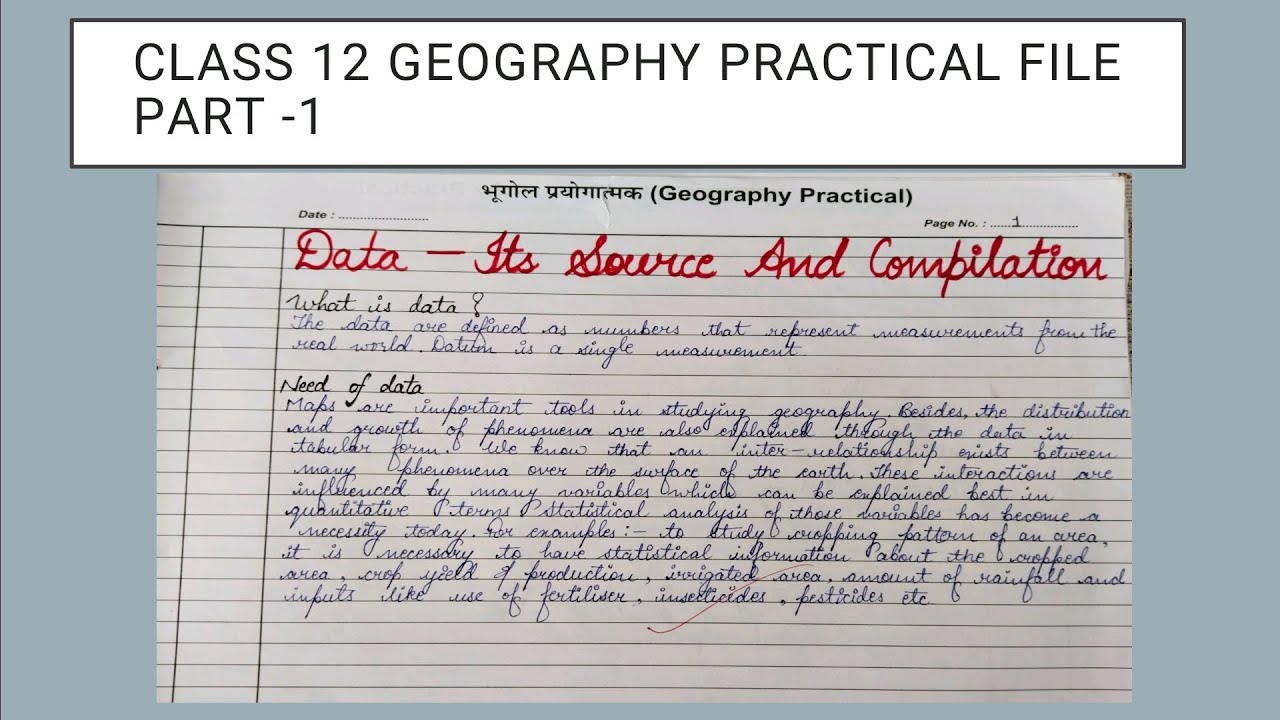 CLASS 12 GEOGRAPHY PRACTICAL FILE
PART -1
भूगोल प्रयोगात्मक (Geography Practical)
Date : ............................
Page No. : ......1.................
Data - Its Source And Compilation
What is data ?
The data are defined as numbers that represent measurements from the
real world. Datum is a single measurement.
Need of data
Maps are important tools in studying geography. Besides, the distribution
and growth of phenomena are also explained through the data in
tabular form. We know that an inter-relationship exists between
many phenomena over the surface of the earth. These interactions are
influenced by many variables which can be explained best in
quantitative terms statistical analysis of those variables has become a
necessity today. For examples:- to study cropping pattern of an area,
it is necessary to have statistical information about the cropped
area, crop yield of production, irrigated area, amount of rainfall and
inputs like use of fertiliser, insecticides, pesticides etc.